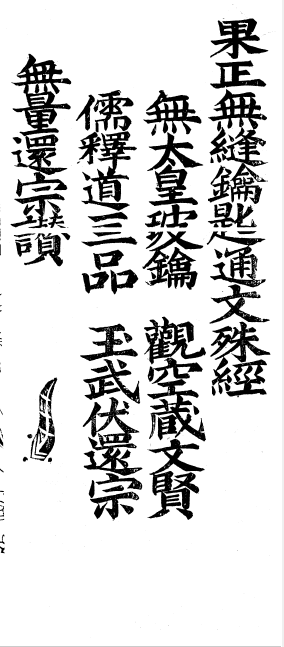 果正無縫鑰匙通文殊經
無太皇玻鑰 觀空藏文賢
儒釋道三品 玉武伏還宗
無量還宗讚